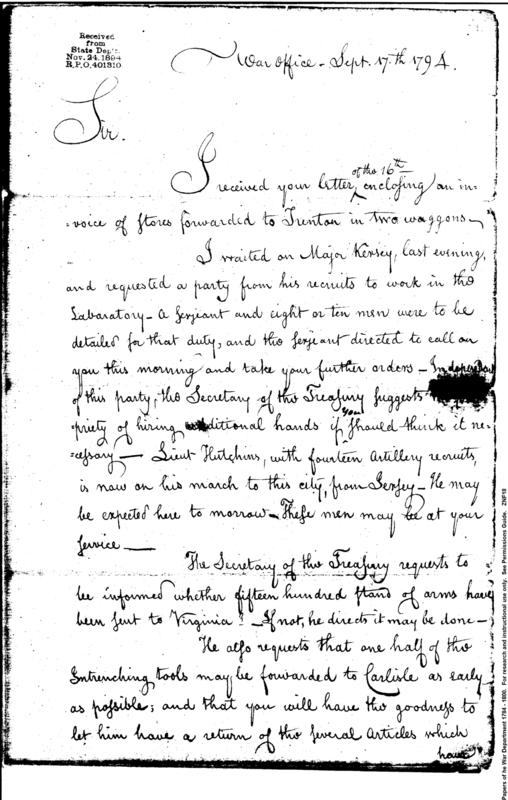 Received
from
State Dep't.
Nov. 24. 1894
R.P.O. 401310
War office - Sept. 17.th 1794.
Sir.
of the 16th
I received your letter, enclosing an in=
=voice of stores forwarded to Trenton in two waggons -
I waited on Major Kersey, last evening,
and requested a party from his recruits to work in the
Labaratory - A serjeant and eight or ten men were to be
detailed for that duty, and the serjeant directed to call on
you this morning and take your further orders - Independent
of this party, the Secretary of the Treasury suggests
priety of hiring additional hands if you should think it ne=
=cessary - Lieut Hutchins, with fourteen Artillery recruits,
is now on his march to this city, from Jersey - He may
be expected here to morrow - These men may be at your
service -
The Secretary of the Treasury requests to
be informed whether fifteen hundred stand of arms have
been sent to Virginia? - If not, he directs it may be done -
He also requests that one half of the
Intrenching tools may be forwarded to Carlisle as early
as possible; and that you will have the goodness to
let him have a return of the several Articles which
have
Papers of he War Department 1784 - 1800. For research and instructional use only. See Permissions Guide. ZNP18